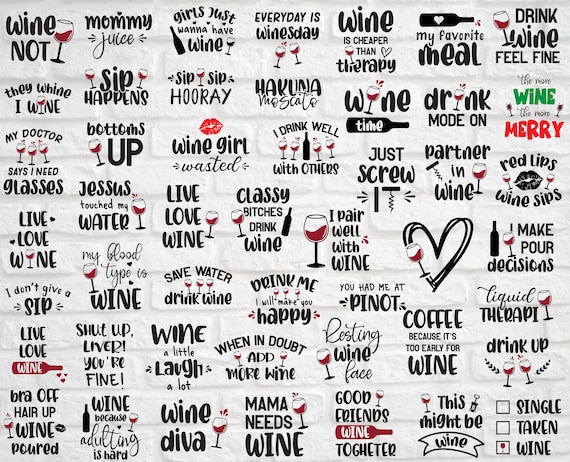 wine
NOT
mommy
juice
girls Just
wanna have
wine
EVERYDAY IS
winesday
wine
IS CHEAPER
THAN
therapy
my favorite
meal
DRINK
wine
FEEL FINE
they whine
I WINE
Sip
HAPPENS
SIP SIP
HOORAY
HAKUNA
Moscato
wine
time
drink
MODE ON
the more
WINE
the more
MERRY
MY DOCTOR
SAYS I NEED
glasses
bottoms
UP
wine girl
wasted
I DRINK WELL
with OTHERS
JUST
screw
IT
partner
in
wine
red lips
wine sips
LIVE
LOVE
WINE
Jessus
touched my
WATER
LIVE
LOVE
WINE
classy
BITCHES
DRINK
wine
I pair
well
with
WINE
I MAKE
POUR
decisions
my blood
type is
WINE
SAVE WATER
drink wine
I don't give a
SIP
DRINK ME
I will make you
happy
YOU HAD ME AT
PINOT
liquid
THERAPI
LIVE
LOVE
WINE
SHUT UP,
LIVER!
YOU'RE
FINE!
WINE
a little
Laugh
a lot
WHEN IN DOUBT
ADD
MORE WINE
Resting
wine
face
COFFEE
BECAUSE IT'S
TOO EARLY FOR
WINE
drink up
bra OFF
HAIR UP
WINE
poured
WINE
because
adulting
is hard
wine
diva
MAMA
NEEDS
WINE
GOOD
FRIENDS
WINE
TOGHETER
This
might be
wine
SINGLE
TAKEN
WINE